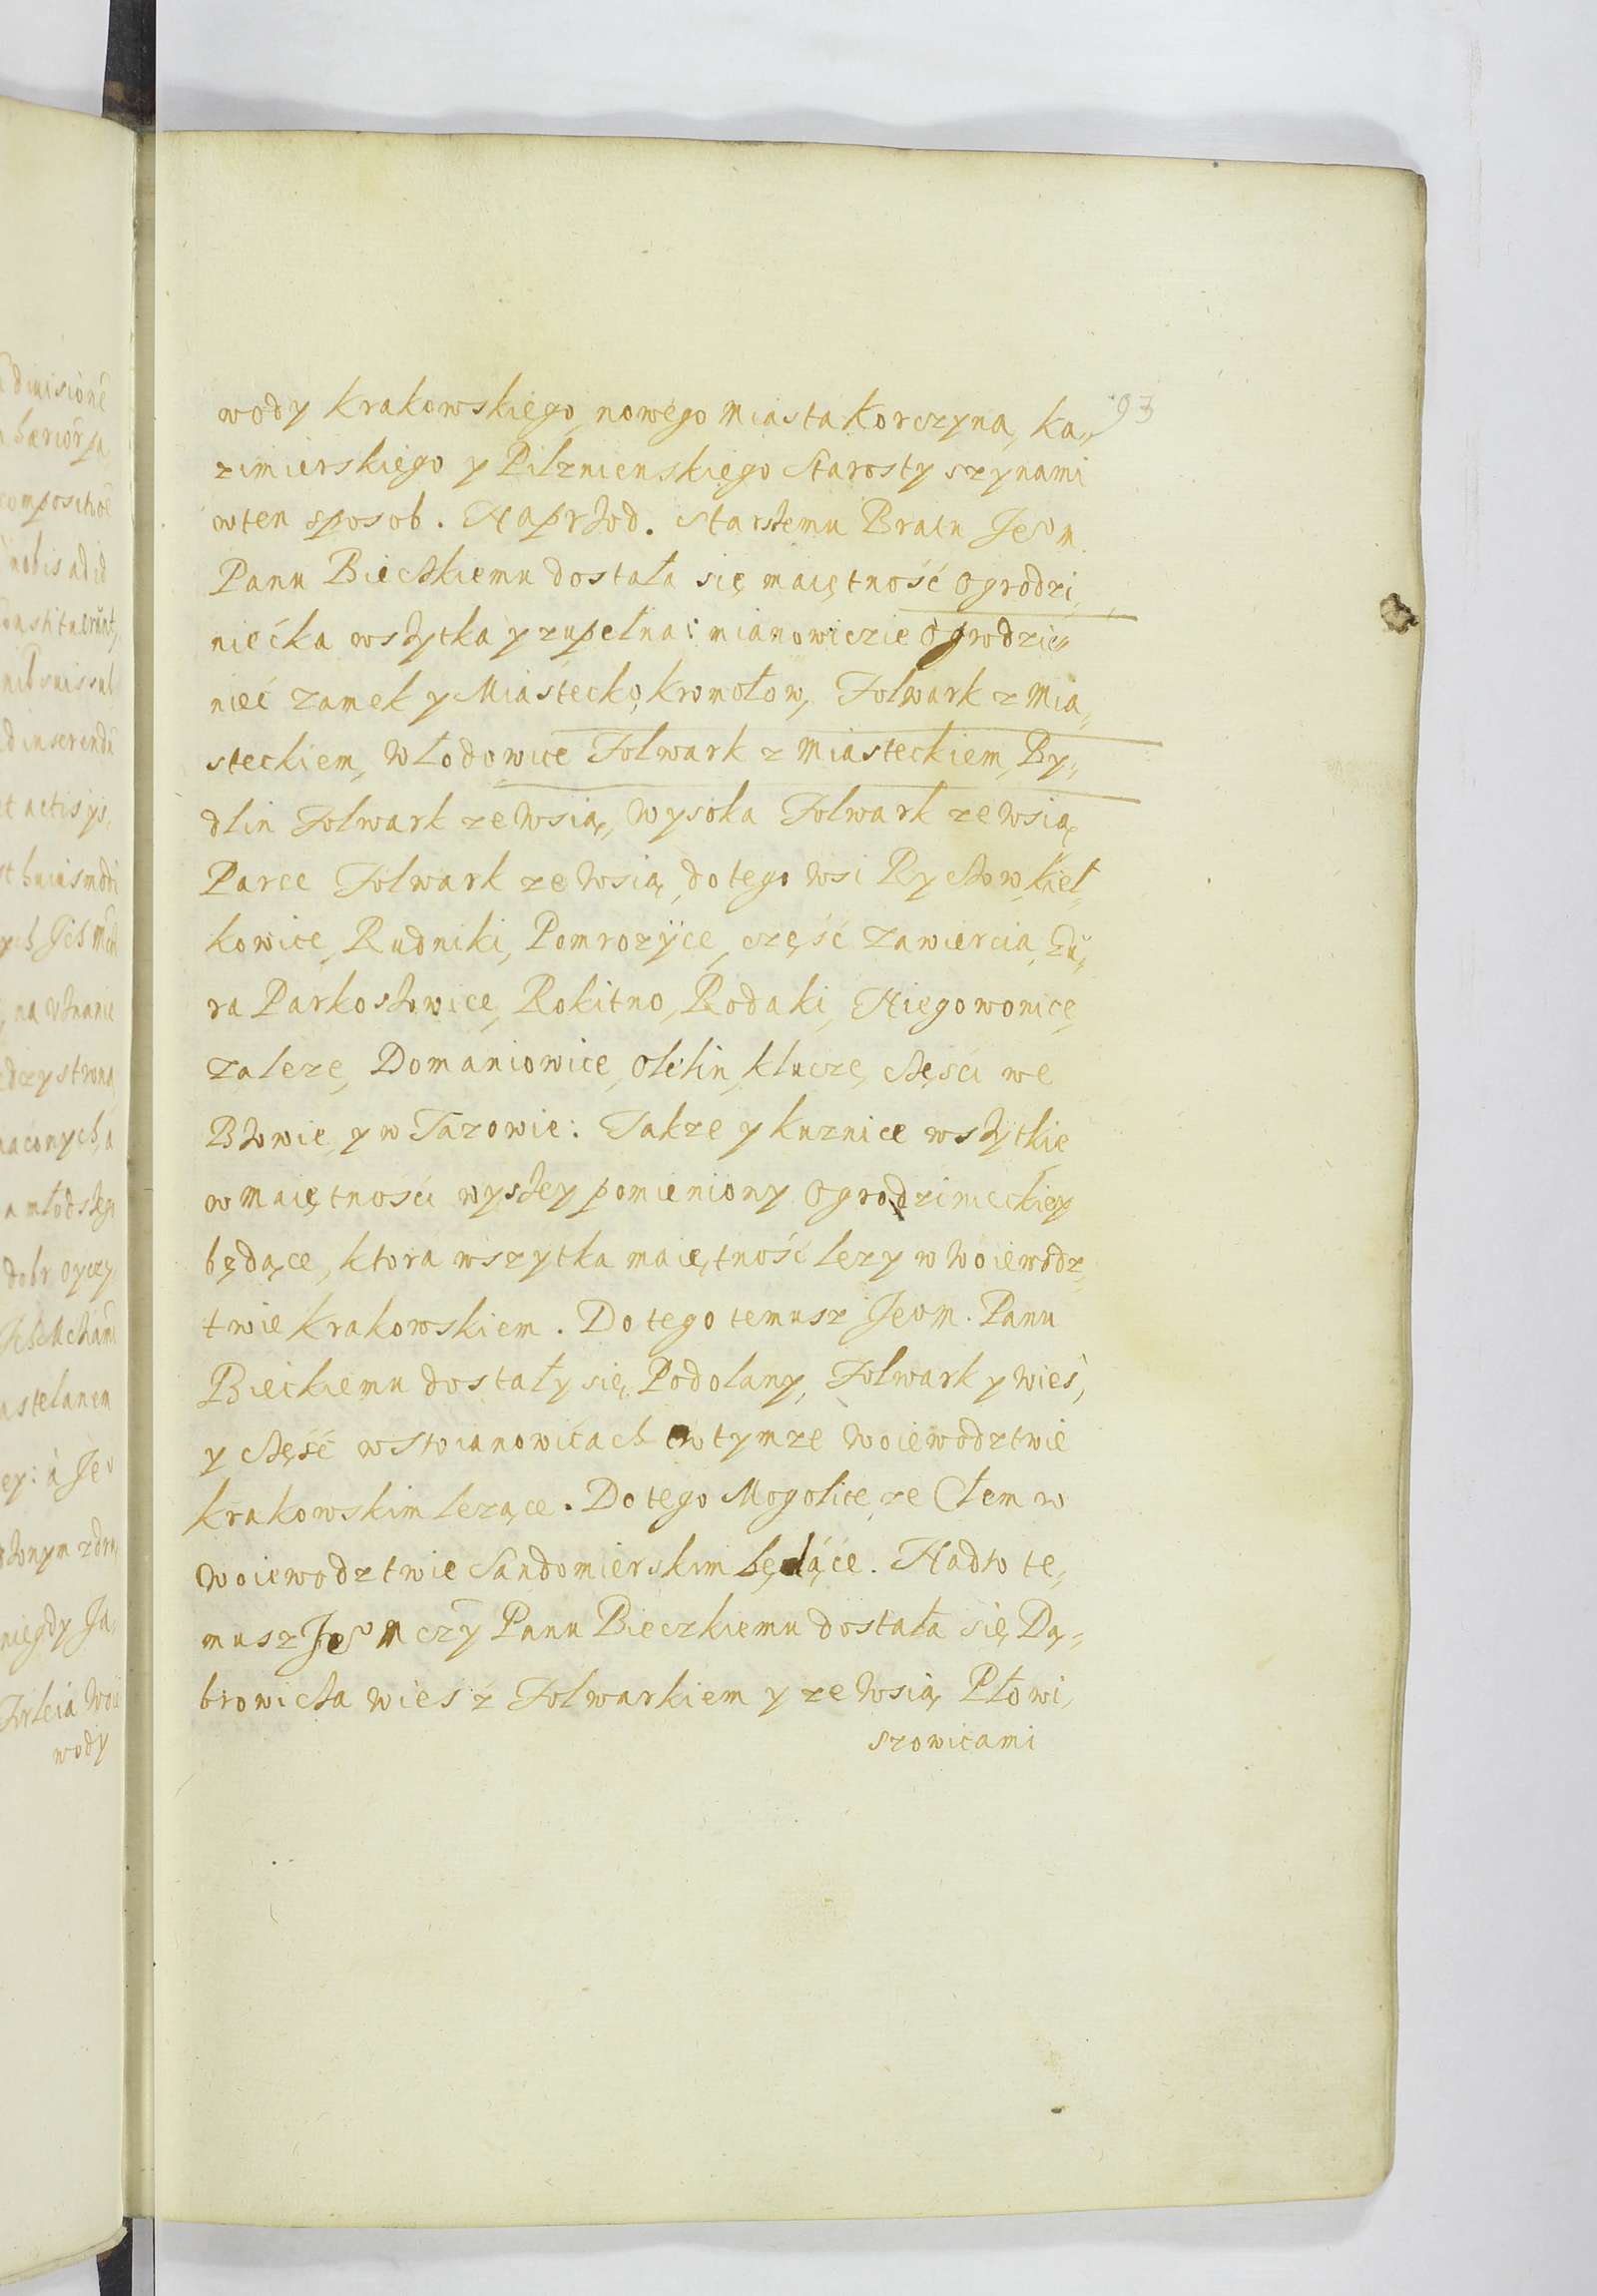 93
wody Krakowskiego, nowego Miasta Korczyna, Ka„
zimierskiego y Pilznienskiego Starosty szynami
wten sposob. Naprzod. Starszemu Bratu Jeom
Panu Bieczkiemu dostała się maiętność Ogrodzi„
niecka wszytka y zupełna: mianowiczie Ogrodzie„
niec zamek y Miastecko, Kromołow, Folwark z Mia„
steckiem, Włodowice Folwark z Miasteckiem, By„
dlin Folwark ze wsią, Wysoka Folwark ze wsią,
Parce Folwark ze wsią, do tego wsi Ryczow, Kieł„
kowice, Rudniki, Pomrozyce, część Zawiercia, Zu„
ra Parkoszowice, Rokitno, Rodaki, Niegowonice,
Zaleze, Domaniowice, Olelin, Klucze, części we
Bzowie, y w Tazowie: Takze y kuznice wszytkie
w Maiętności wyszey pomieniony Ogrodzinieckiey
będące, ktora wszytka maiętność lezy w Woiewodz„
twie Krakowskiem. Do tego temusz Jeom. Panu
Bieckiemu dostały się Podolany, Folwark y wieś,
y część w Stoianowicach w tymze Woiewodztwie
Krakowskim lezące. Do tego Mogolice, ze Cłem w
Woiewodztwie Sandomierskim będące. Nadto te„
musz Jeo Mczy Panu Bieczkiemu dostała się Dą„
browicza wies z Folwarkiem y ze wsią Płowi„
szowicami
divisionē
compositioē
nobis ad id
constituerunt,
ad inserendū
et actis ijs,
st huiusmodi
na uznanie
a młodszego
dobr oyczy
astelanem
niegdy Ja„
Firleia Woie
wody